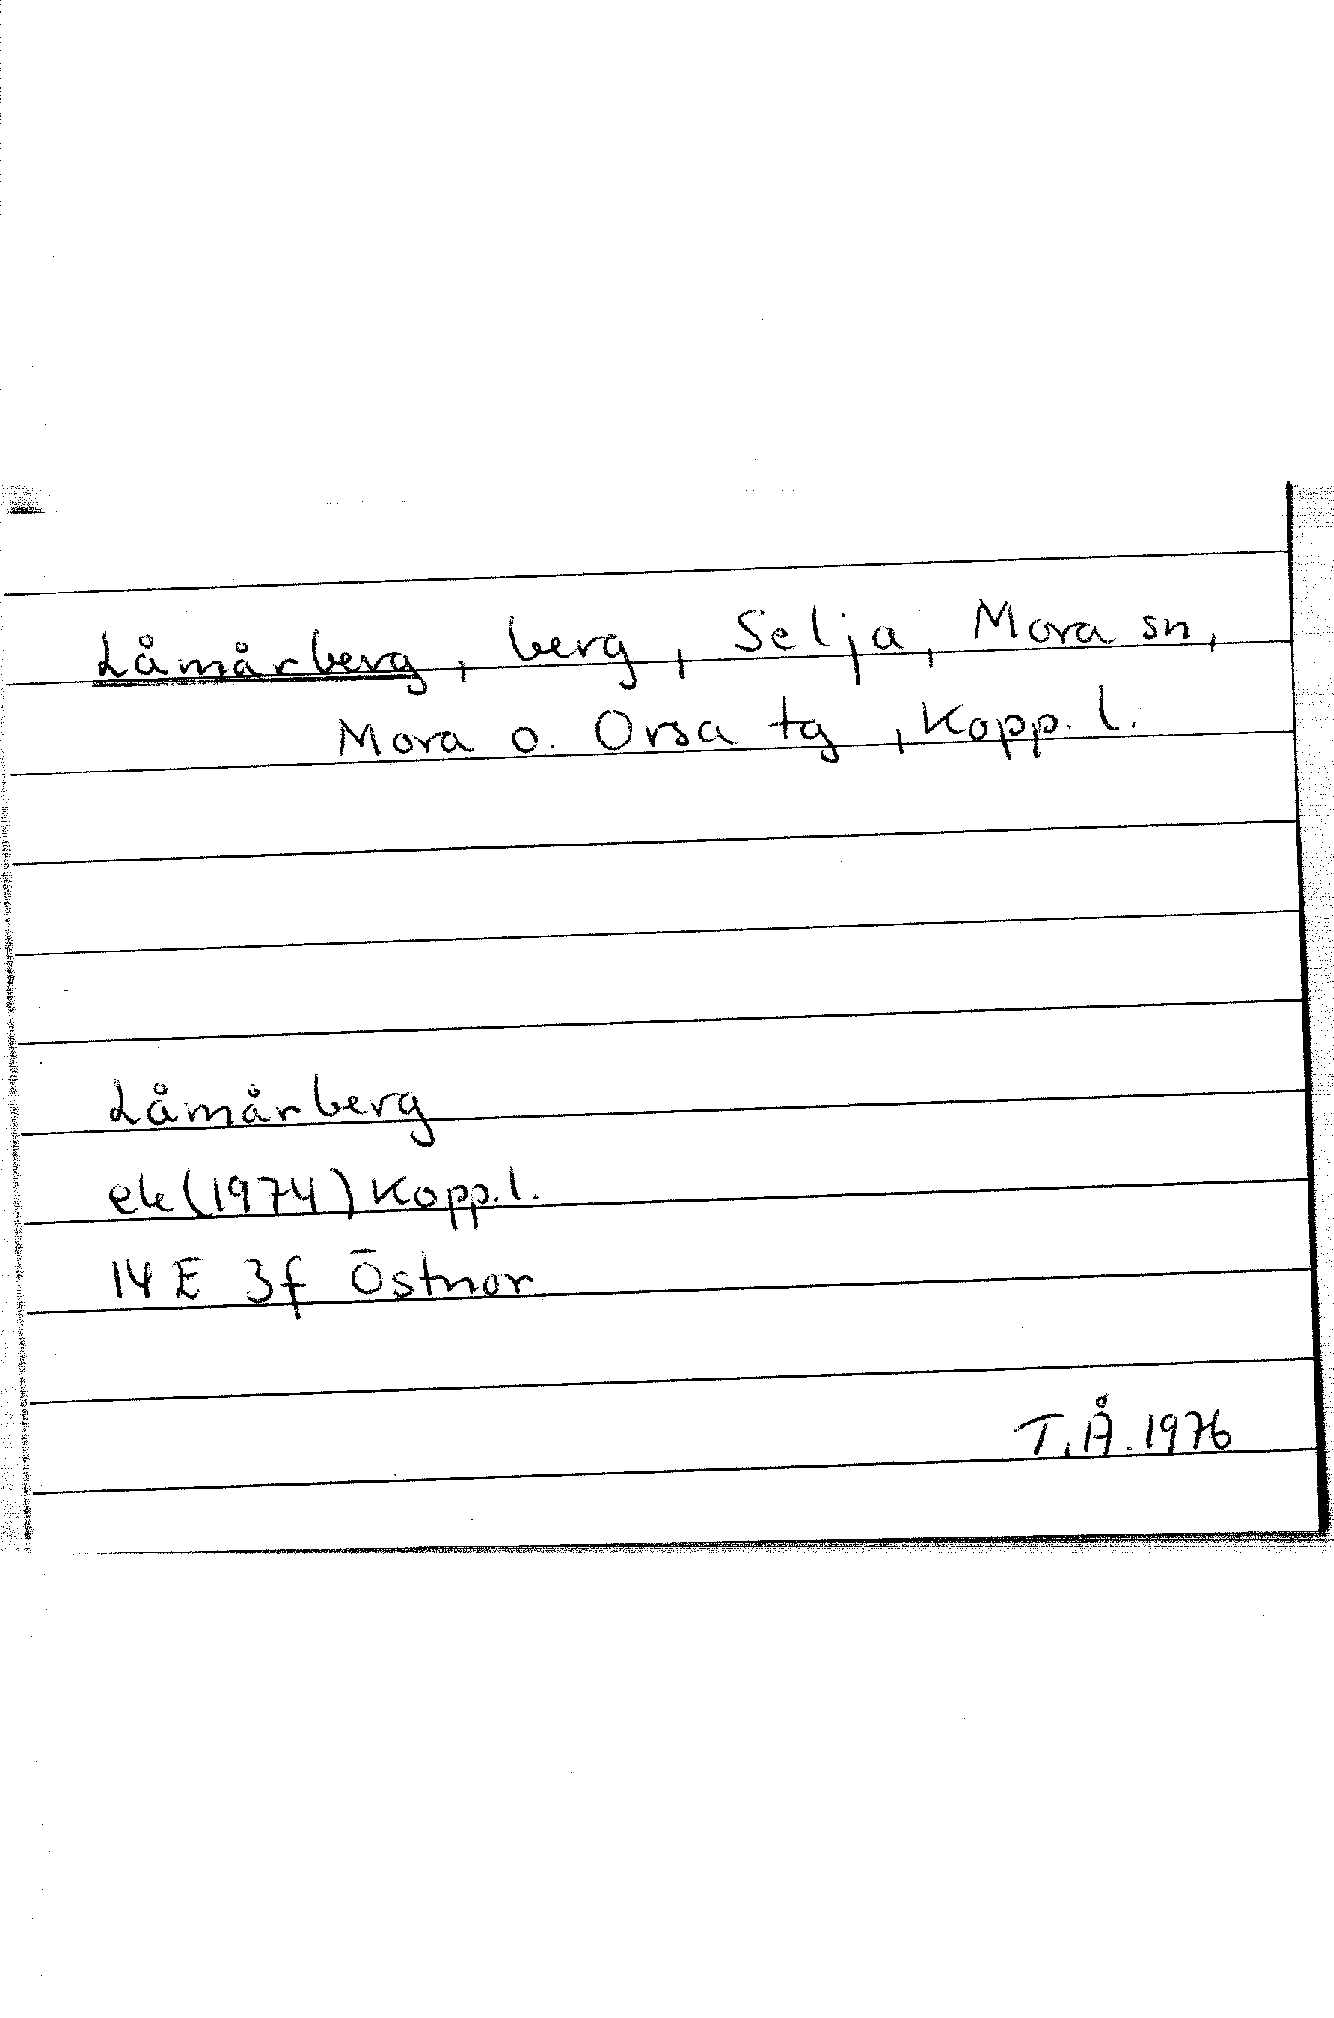 Låmårberg, berg, Selja, Mora sn,
Mora o. Orsa tg, Kopp. l.
Låmårberg
ek (1974) Kopp. l.
14 E 3f Östnor
T.Å. 1976